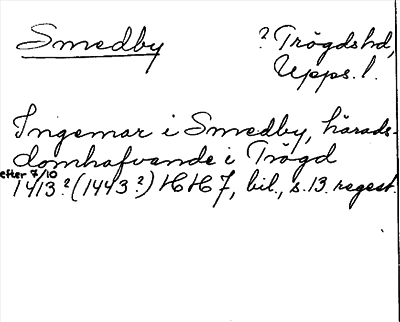 Smedby
? Trögdshd,
Upps. l.
Ingemar i Smedby, härads-
domhafvande i Trögd
efter 7/10
1413? (1443?) HH 7, bil., s. 13. regest.